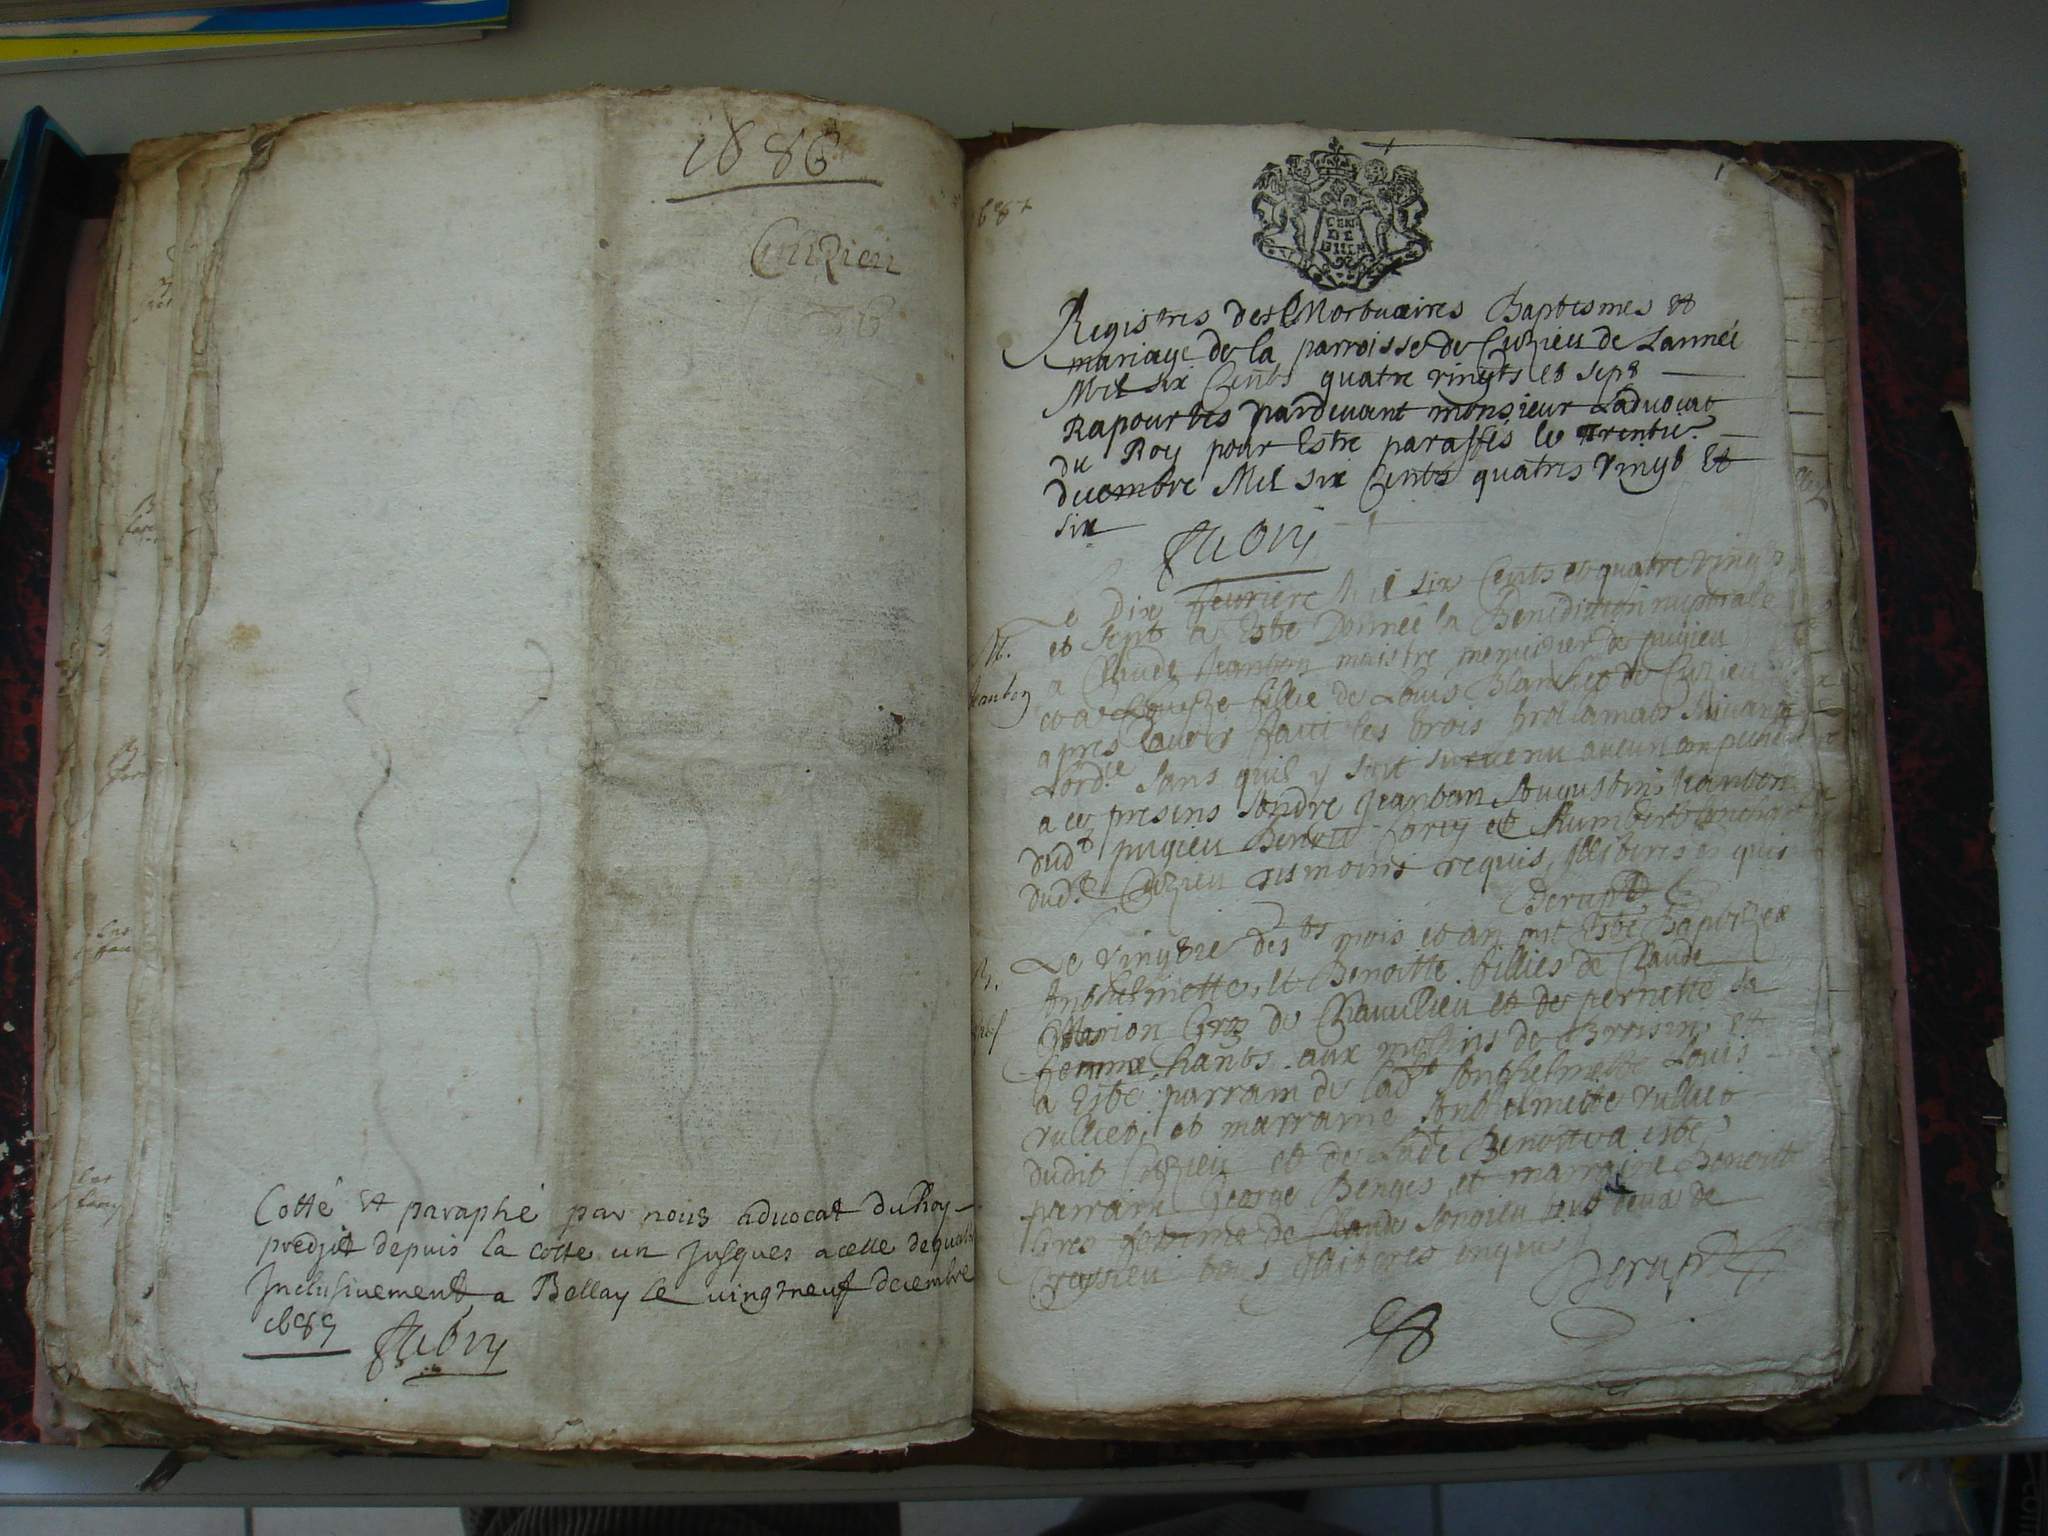 1686
Cuizieu
Cotté et paraphé par nous advocat du Roy
predjt depuis la cotte un jusques a celle de quatre
Inclusivement, a Bellay le vingtneuf decembre
1689
687
CENT
DE
Registres des Mortuaires Baptesmes et
mariage de la parroisse de Cuzieu de Lannéé
Mil six Cents quatre vingts et sept
Raportes pardevant monsieur Ladvocat
du Roy pour Estre paraffés le trente
decembre Mil six Cents quatres vingt Et
six
Le Dix feuvriere Mil six Cents et quatre vingts
et sept a Esté Donneé la Benediction nuptiale
a Claude Jeanbon maistre menusier de pugieu
et a fillie de Louis Blanchet de Cuzieu
apres Lavoir faict les trois proclamats suivant
Lord.e sans quil y soit survenu aucun empuchement
a ce presens Andre Jeanbon Augustin Jeanbon
dud.t pugieu Benoit et Humbert
dud.t Cuzieu tesmoins requis, illitteres
M.
Jeanbon
Le vingt des.ts mois et an ont Esté baptizée
Anthelmette, et Benoitte fillies de Claude
Marion Gros de et de pernette sa
femme, hants. aux molins de et
a Esté parrain de lad.t Anthelmette Louis
rulliet, et marraine Anthelmette rulliet
dudit Cuzieu et de Lad.te Benoitte a esté
parrain George Benges et marraine Benoite
Gros femme de Claude tout deux de
Creysieu tous
B.